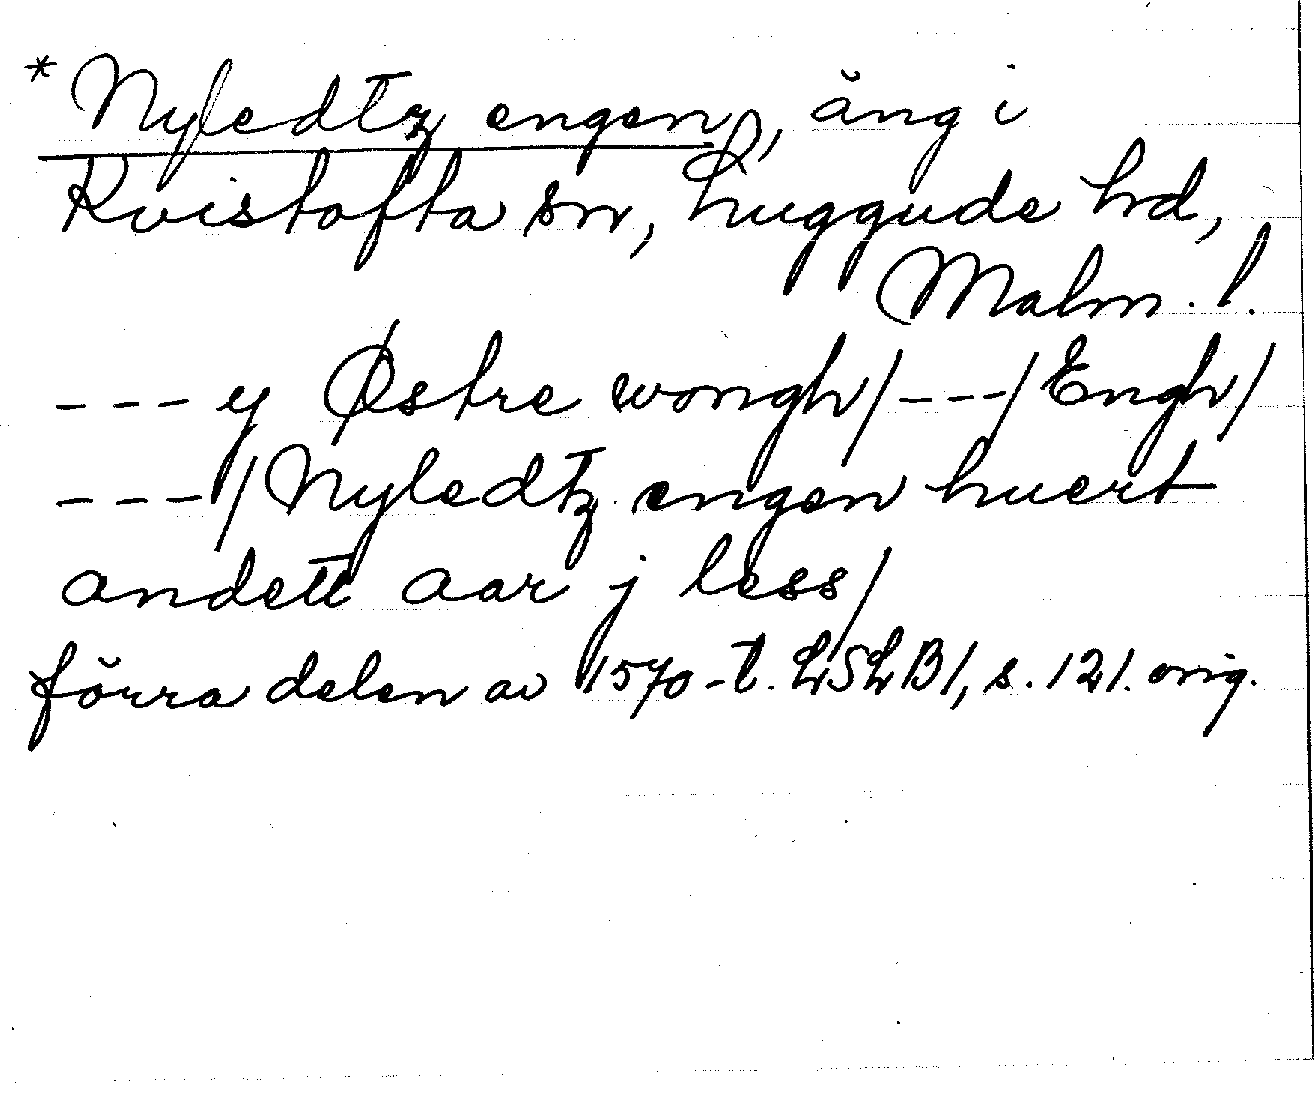 * Nyledtz engen, äng i
Kvistofta sn, Luggude hd,
Malm. l.
--- y Østre wongh/---/Engh/
---/Nyledtz engen huert
andett aar j less/
förra delen av 1570-t. LSLB1, s. 121. orig.